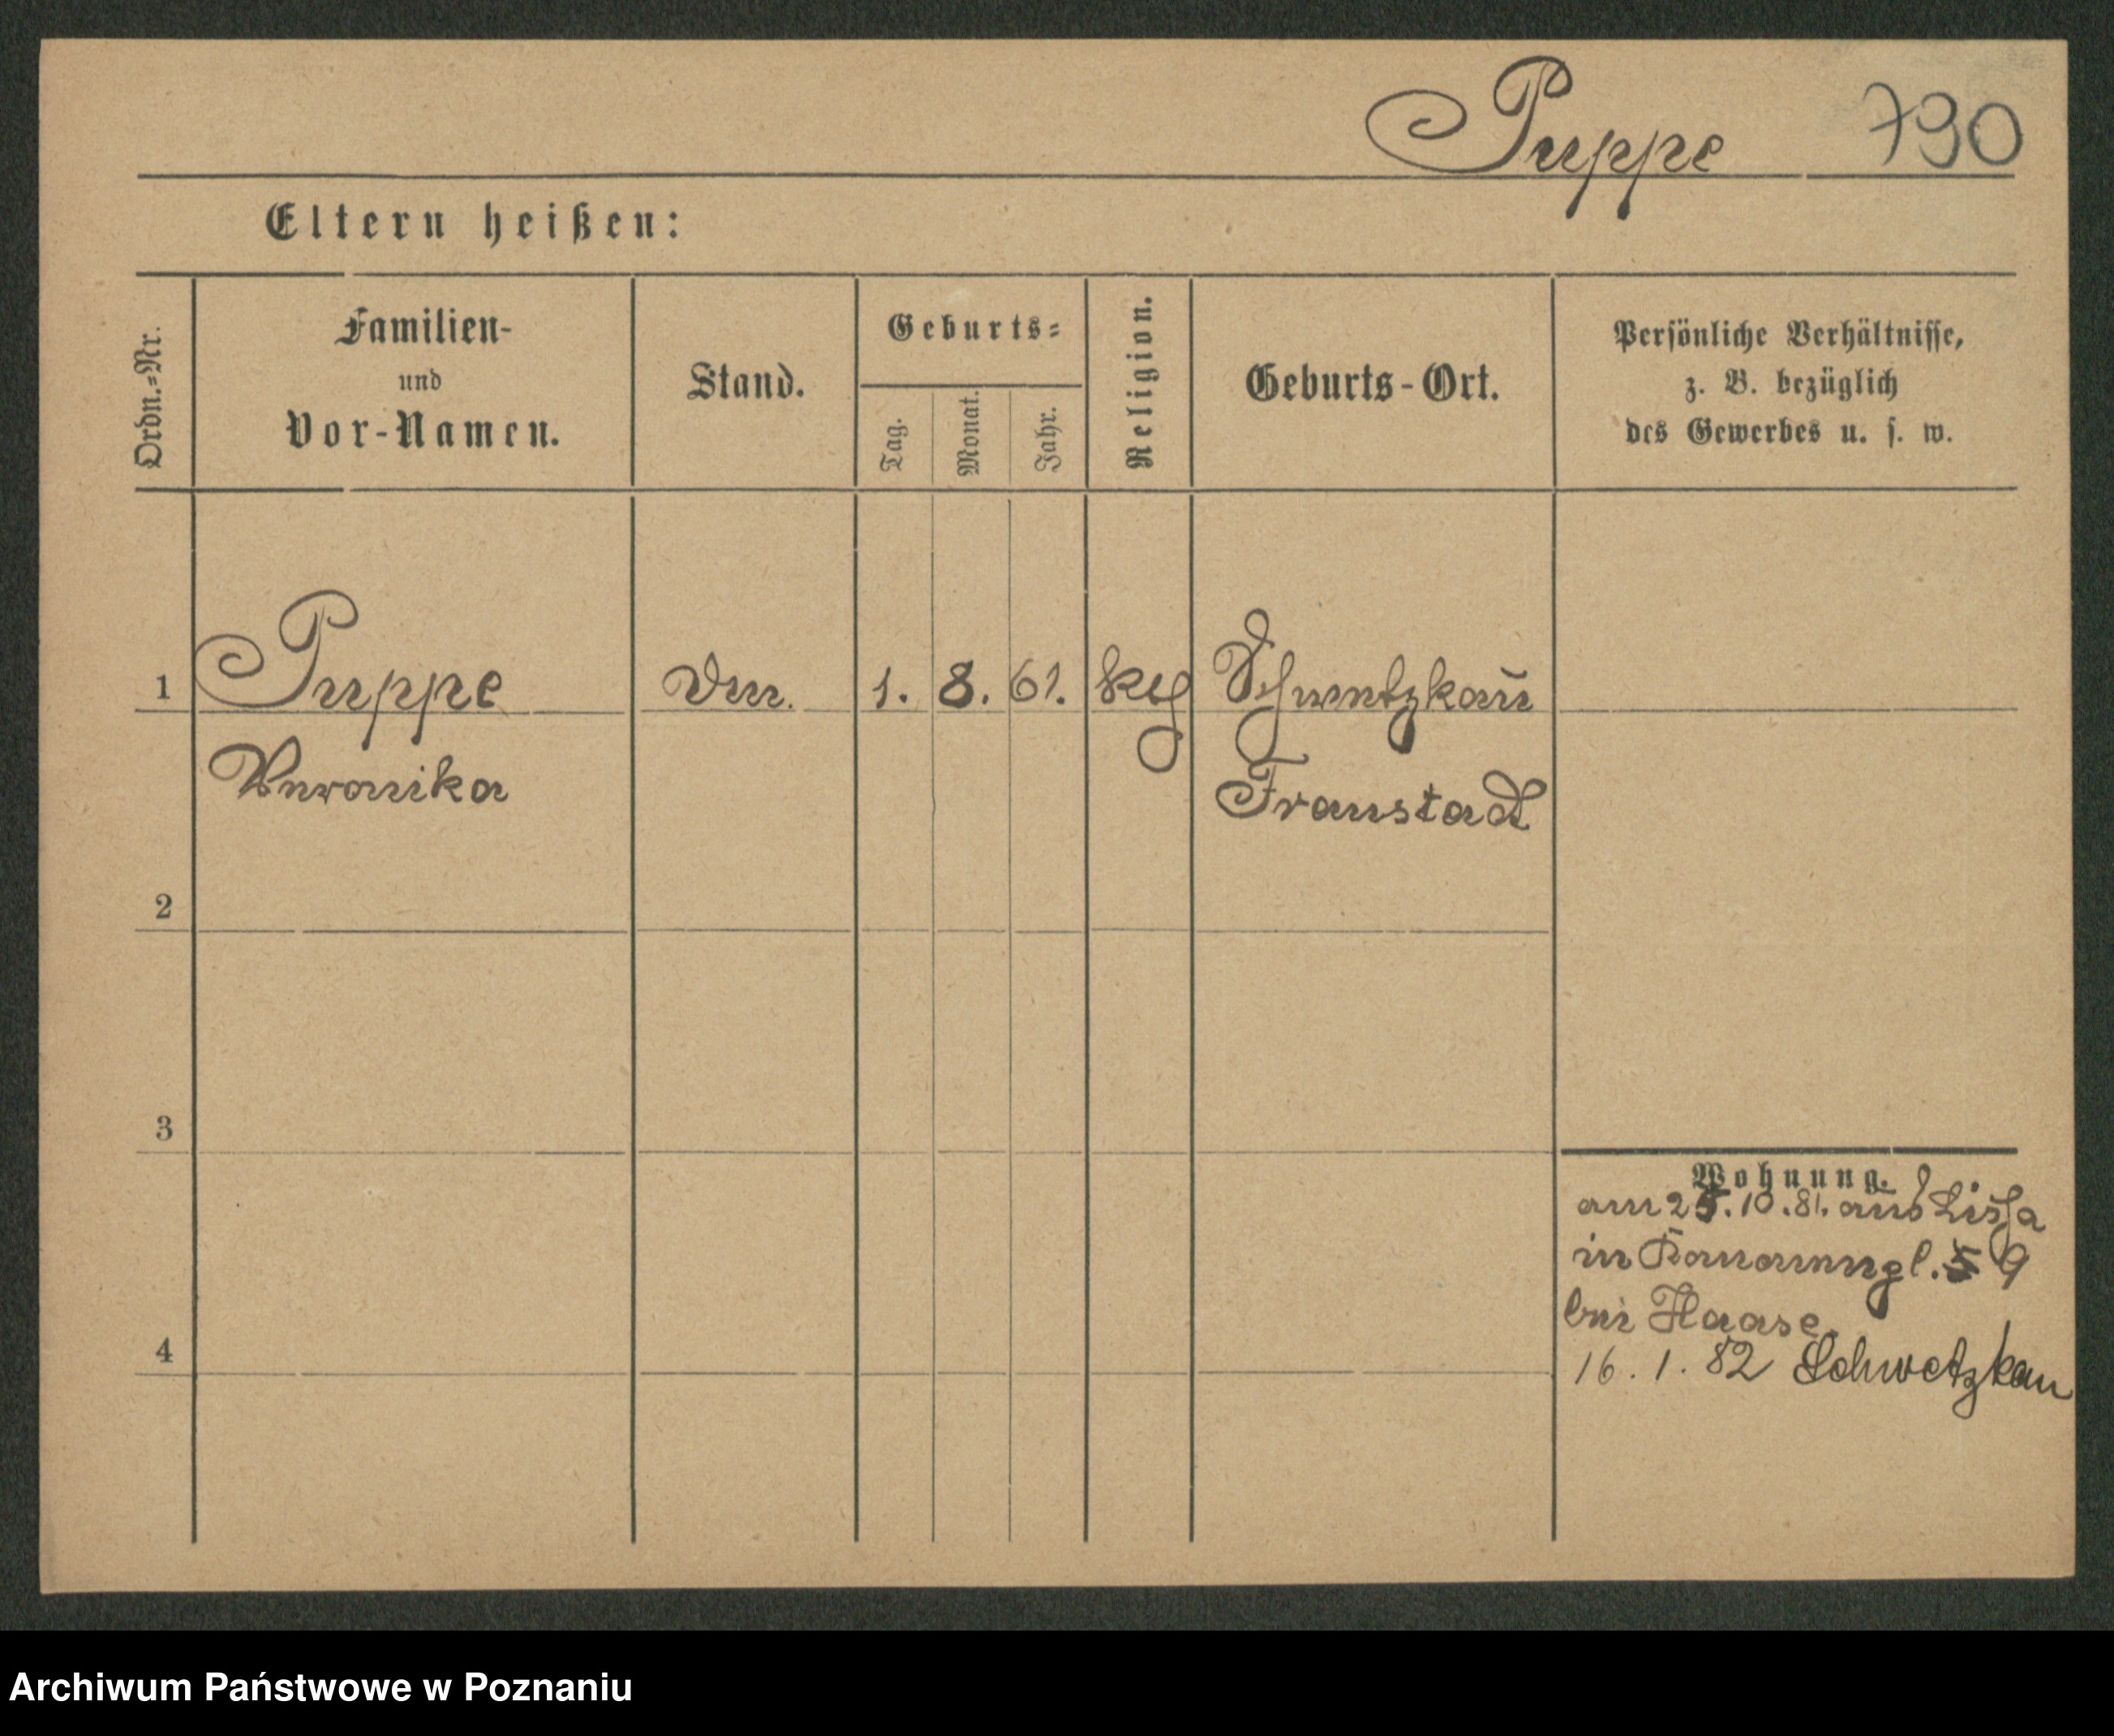 Puppe 790
Eltern heißen:
Ordn.=Nr.
Familien-
und
Vor-Namen.
Stand.
Geburts=
Tag.
Monat.
Jahr.
Religion.
Geburts-Ort.
Persönliche Verhältnisse,
z. B. bezüglich
des Gewerbes u. s. w.
1 Puppe 1. 8. 61. Schwetzkau
Veronika Fraustadt
2
3
Wohnung.
am 25.10.81. aus Lissa
in 9
bei Haase.
4 16. 1. 82 Schwetzkau
Archiwum Państwowe w Poznaniu